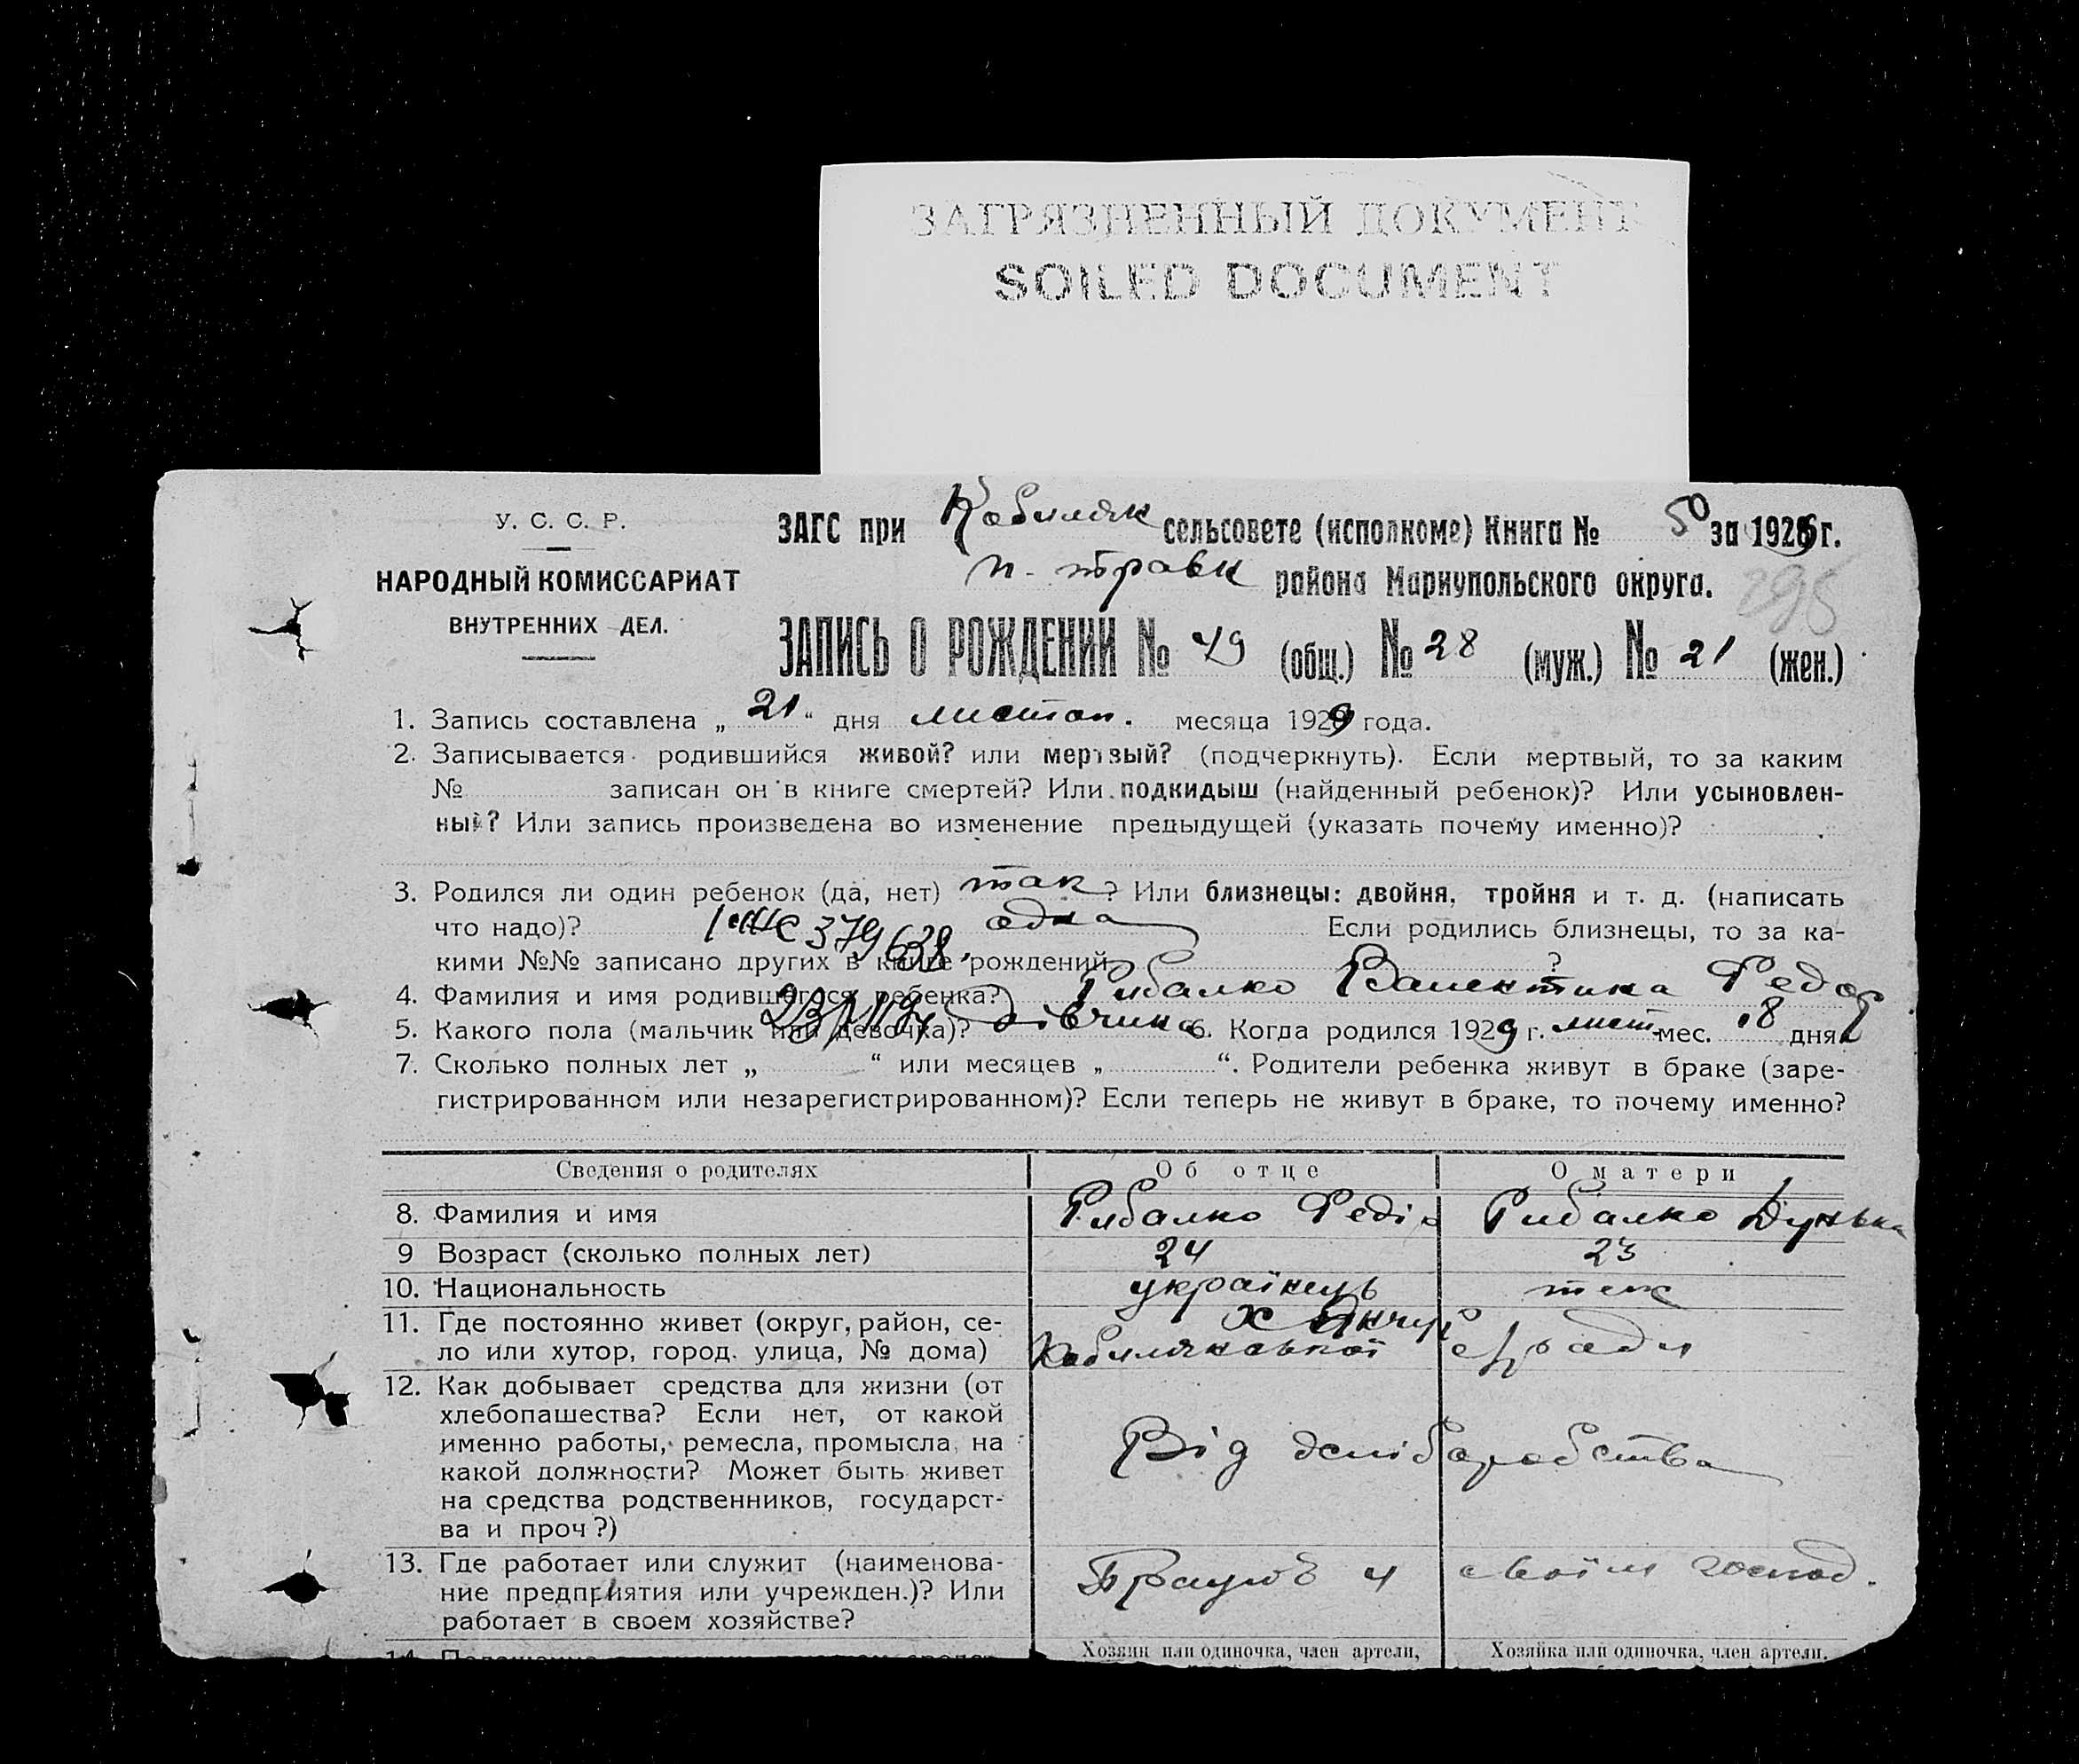 ЗАГРЯЗНЕННЫЙ ДОКУМЕНТ
SOILED DOCUMENT
У. С. С. Р.
НАРОДНЫЙ КОМИССАРИАТ
ВНУТРЕННИХ ДЕЛ.
ЗАГС при Кобиляк сельсовете (исполкоме) Книга № 50 за 1929 г.
п. район района Мариупольского округа.
295
ЗАПИСЬ О РОЖДЕНИИ № 49 (общ.) № 28 (муж.) № 21 (жен.)
1. Запись составлена „ 21 “ дня листоп. месяца 1929 года.
2. Записывается родившийся живой? или мертвый? (подчеркнуть). Если мертвый, то за каким
№ записан он в книге смертей? Или подкидыш (найденный ребенок)? Или усыновлен-
ный? Или запись произведена во изменение предыдущей (указать почему именно)?
3. Родился ли один ребенок (да, нет) так ? Или близнецы: двойня, тройня и т. д. (написать
что надо)? одна Если родились близнецы, то за ка-
379638
кими №№ записано других в книге рождений ?
4. Фамилия и имя родившегося ребенка? Рибалко Валентина Федор
5. Какого пола (мальчик или девочка)? дівчина 6. Когда родился 1929 г. лист. мес. 18 дня
7. Сколько полных лет „ “ или месяцев „ “. Родители ребенка живут в браке (заре-
гистрированном или незарегистрированном)? Если теперь не живут в браке, то почему именно?
Сведения о родителях Об отце О матери
8. Фамилия и имя Рибалко Федір Рибалко Дунька
9 Возраст (сколько полных лет) 24 23
10. Национальность українець теж
11. Где постоянно живет (округ, район, се- х
ло или хутор, город. улица, № дома) Кобиляковької с/ради
12. Как добывает средства для жизни (от
хлебопашества? Если нет, от какой
именно работы, ремесла, промысла, на Від хліборобства
какой должности? Может быть живет
на средства родственников, государст-
ва и проч?)
13. Где работает или служит (наименова- Працює у своїм господ.
ние предприятия или учрежден.)? Или
работает в своем хозяйстве?
Хозяин или одиночка, член артели, Хозяйка или одиночка, член артели,